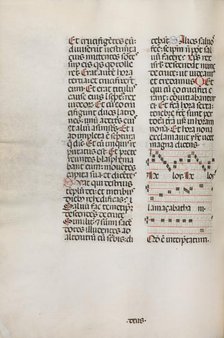 Et crucifigentes eu
diuiserunt uestimenta
eius mittentes sorte
sup eis quis quid tolle
ret Erat aute hora
tercia et crucifixerut
eum Et erat titulus
cause eius
iudeorum Et cum eo
crucifigunt duos latro
nes unu a dextris et
alium a sinistris Et i
pleta e scriptura q
dicit Et cum iniquis re
putatus est Et
tes blasphemabant
eum mouentes capita
sua et dicentes
Vah qui destruis
templu dei et in tribus
diebus reedificas
Saluu fac temetip
descendens de cruce
Similiter et summi sa
cerdotes illudentes ad
alterutrum cu scribis di
cebat Alios saluos
fecit seipsum n potest sal
uu facere
isrl descendat nunc
de cruce ut uideam
et credamus Et
qui cum eo crucifixi
erant conuitiabant ei
Et facta hora sexta te
nebre facte sunt per
totam terra usq in hora
nonam Et hora nona
exclamauit ihs uoce
magna dicens
loy loy
lamazabatha ni
Quod e interpretatum
deus